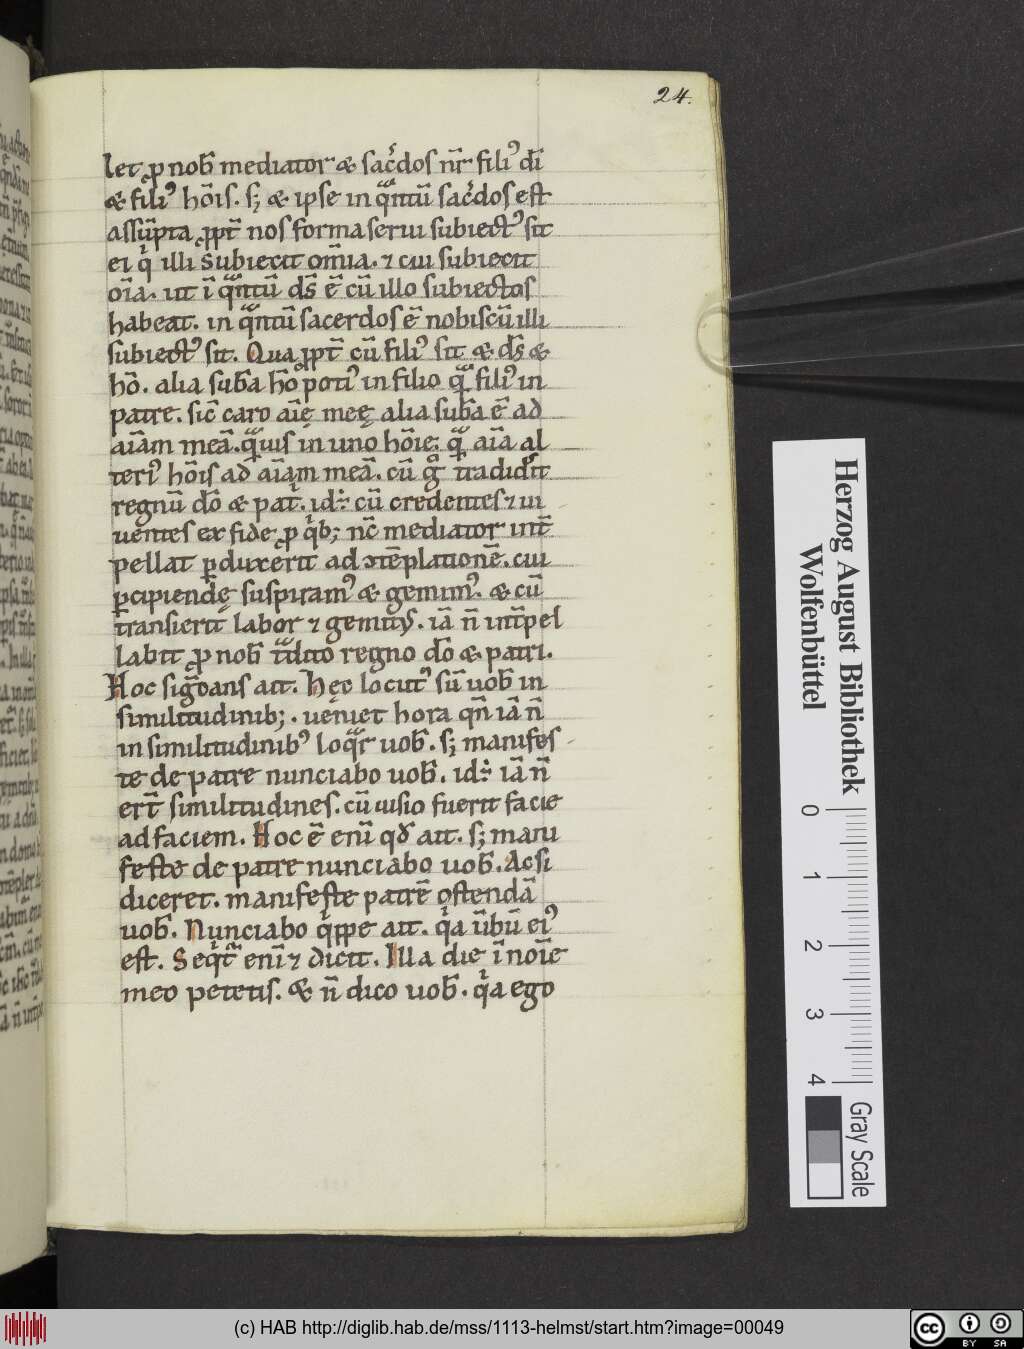 24.
let ꝓ nob̄ mediator & sac̾dos nr̄ filiꝰ dī
& filiꝰ hōis. sꝫ & ipse in qͣntū sac̾dos est
assūpta ꝓpt̄ nos forma serui subiectꝰ sit
ei qͥ illi subiecit om̄ia. ⁊ cui subiecit
oīa. ut ī qͣntū ds̄ ē cū illo subiectos
habeat. in qͣntū sacerdos ē nobiscū illi
subiectꝰ sit. Qua ꝓpt̄ cū filiꝰ sit & ds̄ &
hō. alia sub̄a hō potiꝰ in filio qͣ filiꝰ in
patre. sic̄ caro aīę meę alia sub̄a ē ad
aīam meā. qͣuis in uno hōie: qͣ aīa al
teriꝰ hōis ad aīam meā. cū gͦ tradid̾it
regnū dō & pat̾. id÷ cū credentes ⁊ ui
uentes ex fide ꝓ qͥb; nc̄ mediator int̄
pellat ꝑduxerit ad ɔtēplationē. cui
ꝑcipiendę suspiramꝰ & gemimꝰ. & cū
transierit labor ⁊ gemitꝰ. iā n̄ int̄pel
labit ꝓ nob̄ tͣdito regno dō & patri.
Hoc sigͦans ait. Hęc locutꝰ sū uob̄ in
similitudinib;. ueniet hora qn̄ iā n̄
in similitudinibꝰ loqͣr uob̄. sꝫ manifes
te de patre nunciabo uob̄. id÷ iā n̄
ert̄ similitudines. cū uisio fuerit facie
ad faciem. Hoc ē enī qd̄ ait. sꝫ mani
feste de patre nunciabo uob̄. Ac si
diceret. manifeste patrē ostendā
uob̄. Nunciabo qͥppe ait. qͥa ūbū eiꝰ
est. Seqͥtͣ enī ⁊ dicit. Illa die ī noīe
meo petetis. & n̄ dico uob̄. qͥa ego
Herzog August Bibliothek
Wolfenbüttel
0
1
2
3
4
Gray Scale
(c) HAB http://diglib.hab.de/mss/1113-helmst/start.htm?image=00049
cc BY SA